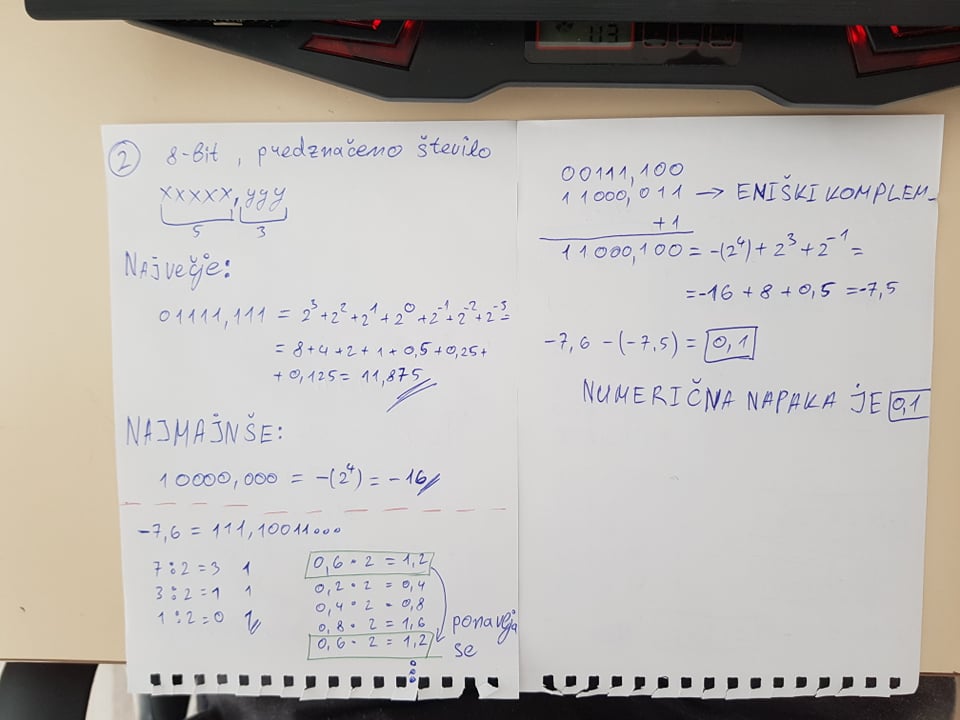 113
2 8-bit, predznačeno število
xxxxx,yyy
5 3
Največje:
01111,111 = 2³+2²+2¹+2⁰+2⁻¹+2⁻²+2⁻³=
= 8+4+2+1+0,5+0,25+
+0,125= 11,875
NAJMAJNŠE:
10000,000 = -(2⁴) = -16
-7,6 = 111,10011...
7:2=3 1
3:2=1 1
1:2=0 1
0,6·2=1,2
0,2·2=0,4
0,4·2=0,8
0,8·2=1,6
0,6·2=1,2
ponavlja
se
00111,100
11000,011 → ENIŠKI KOMPLEM_
+1
11000,100 = -(2⁴)+2³+2⁻¹=
=-16+8+0,5=-7,5
-7,6-(-7,5)= 0,1
NUMERIČNA NAPAKA JE 0,1